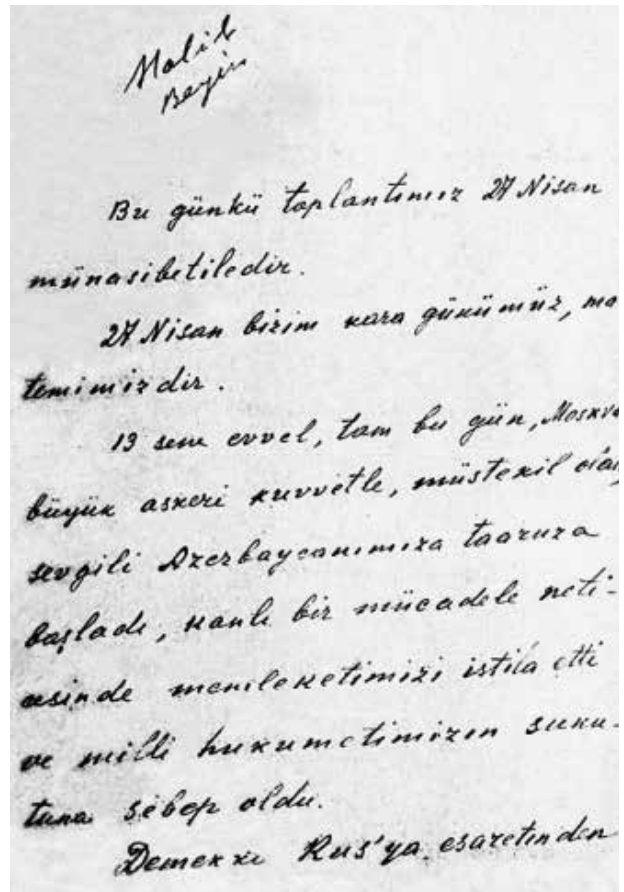 Halil
Beyin
Bu günkü toplantımız 27 Nisan
münasibetiledir.
27 Nisan bizim kara günümüz, ma
temimizdir.
13 sene evvel, tam bu gün, Moskva
büyük askeri kuvvetle, müstekil olan
sevgili Azerbaycanımıza taaruza
başladı, kanlı bir mücadele neti-
cesinde memleketimizi istila etti
ve milli hukumetimizin suku-
tuna sebep oldu.
Demekki Rus'ya esaretinden